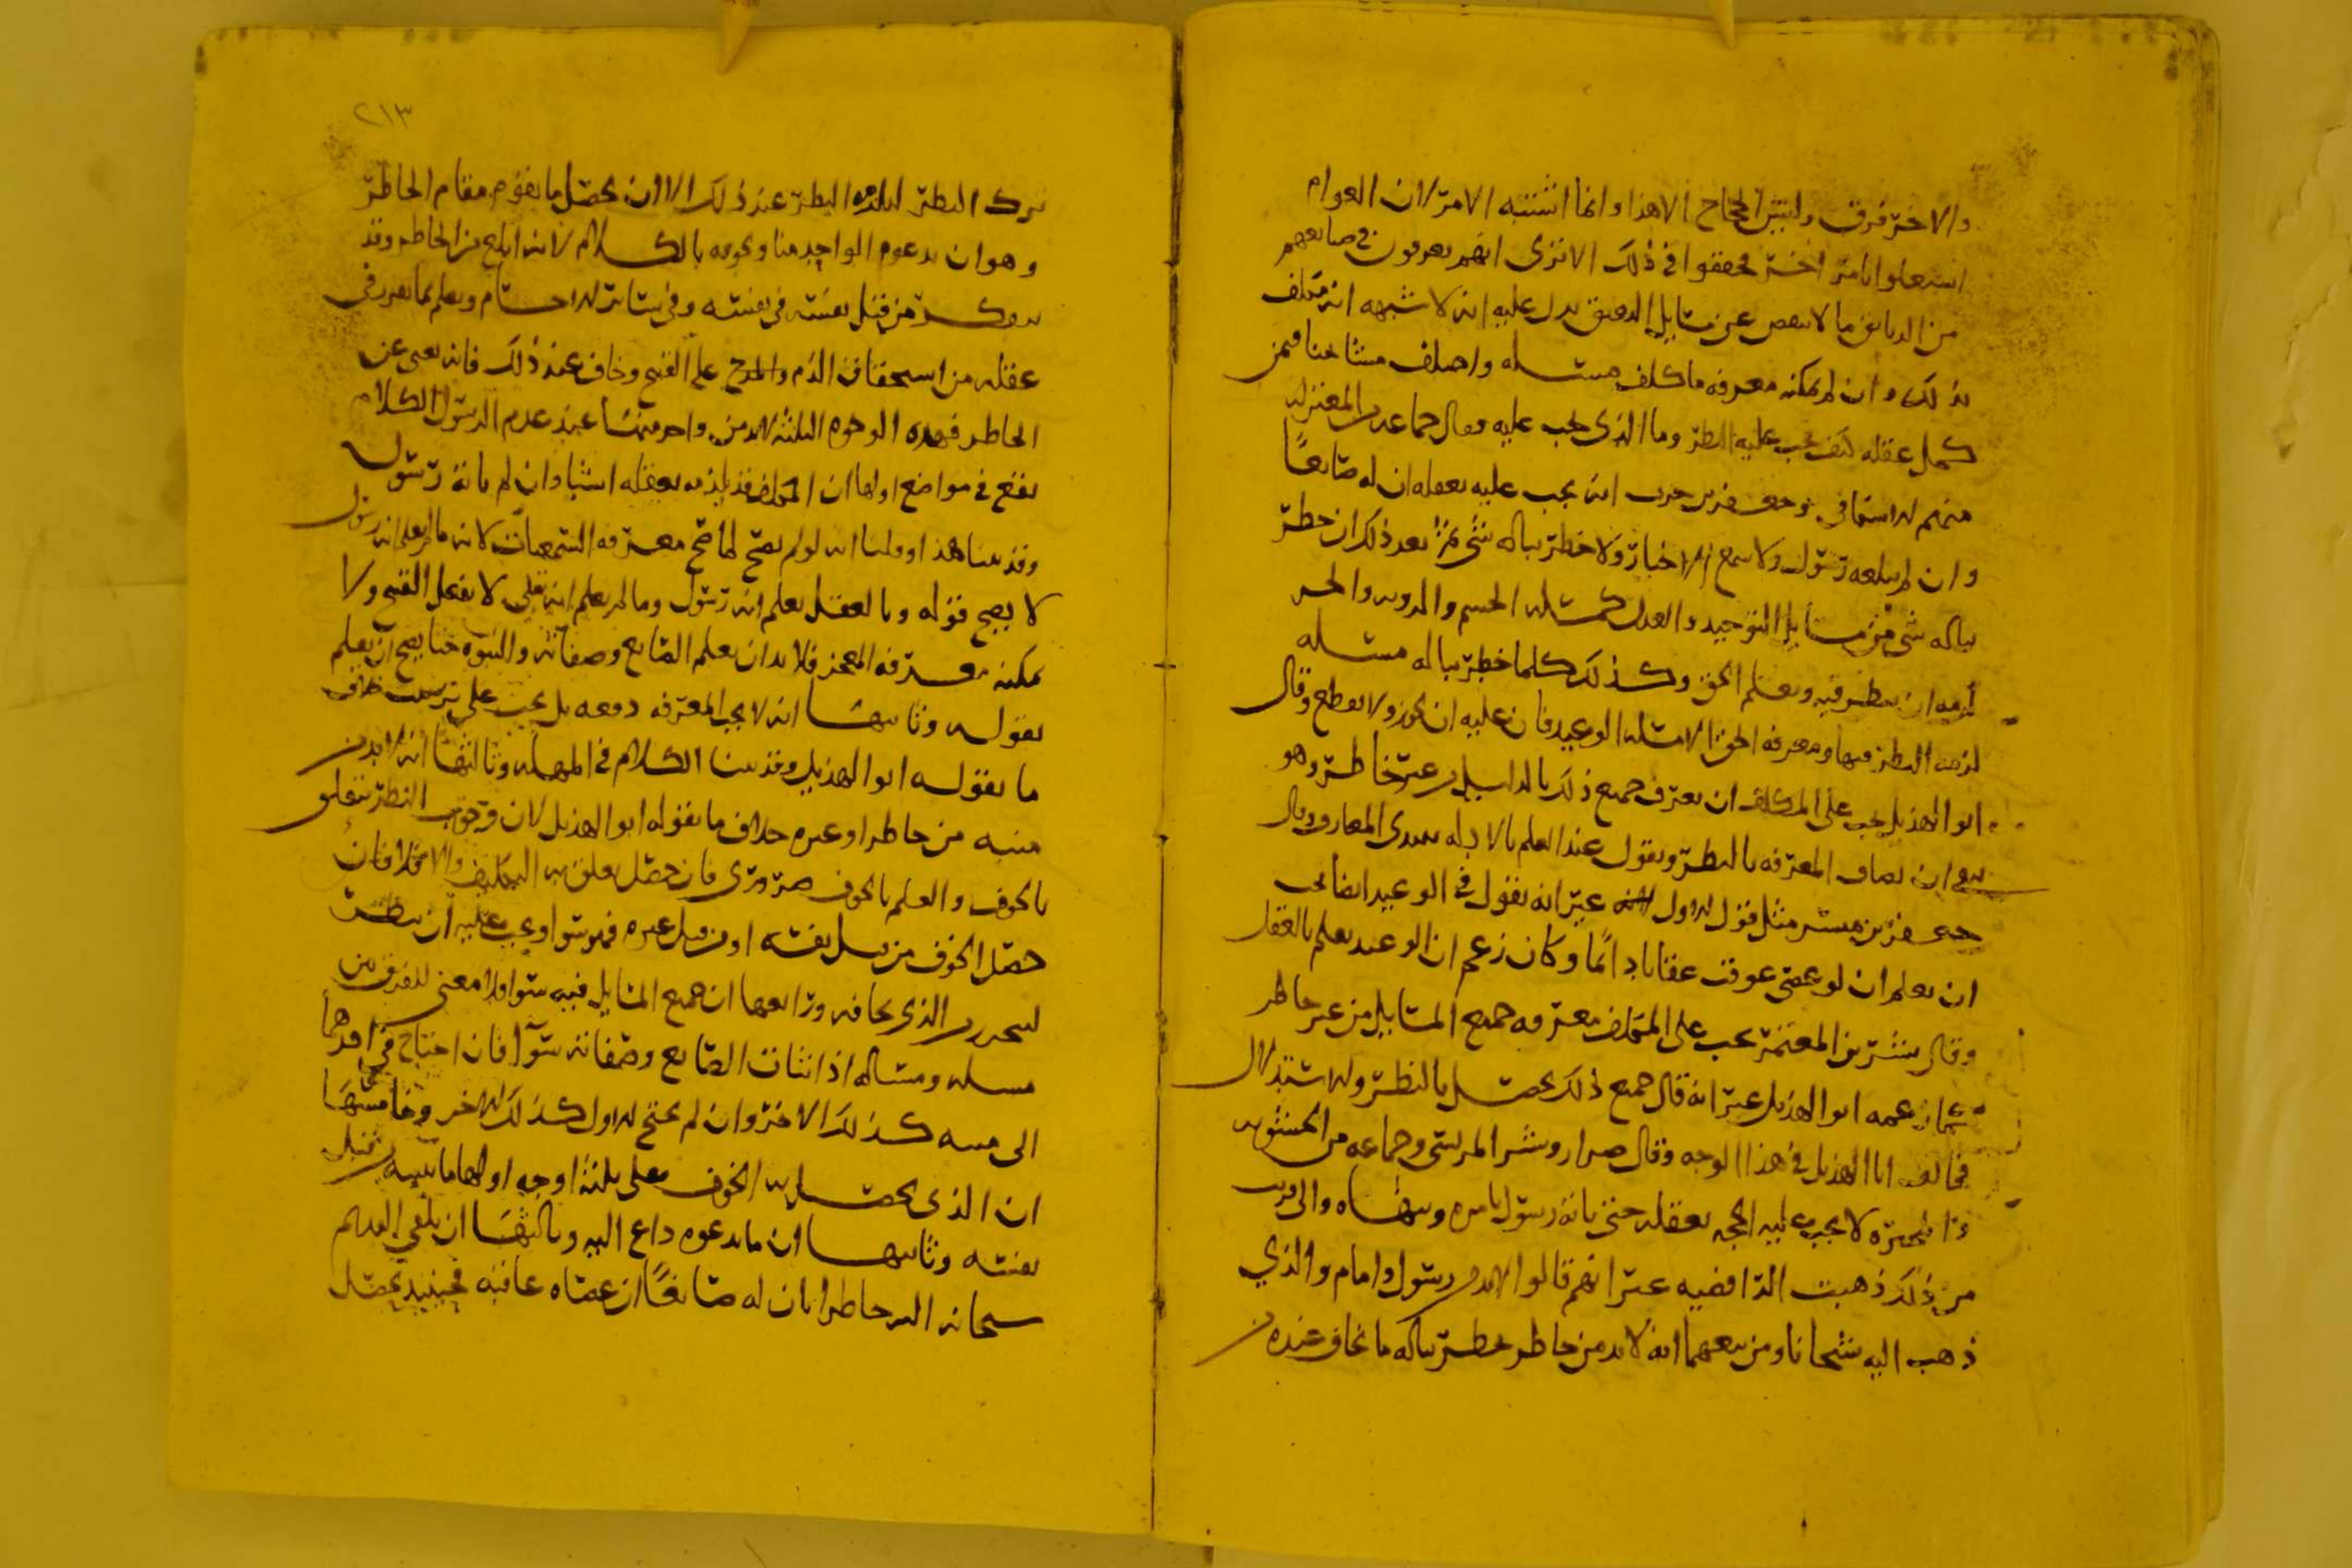 والاخر فرق وليس الحجاج الا هذا وانما اشتبه الامر لان العوام
استعملوا بامر اخر محققوا في ذلك الا ترى انهم يعرفون في صنايعهم
من الدقايق ما لا ينقص عن مسايل الدقيق يدل عليه انه لا شبهه انه مكلف
بذلك وان لم يمكنه معرفه ما كلف مسئله واختلف مشايخنا فيمن
كمل عقله كيف يجب عليه النظر وما الذي يجب عليه فقال جماعه من المعتزله
منهم الاسكافي وجعفر بن حرب انه يجب عليه بعقله ان له صانعًا
وان لم يبلغه رسول ولا سمع الاخبار ولا خطر بباله شي ثم بعد ذلك ان خطر
بباله شي من مسايل التوحيد والعدل كمسئله الجسم والرويه والجبر
لزمه ان ينظر فيه ويعلم الحق وكذلك كلما خطر بباله مسئله
لزمه النظر فيها ومعرفه الحق الا مسئله الوعيد فان عليه ان يجوز ولا يقطع وقال
ابو الهذيل يجب على المكلف ان يعرف جميع ذلك بالدليل من غير خاطر وهو
ينفي ان يضاف المعرفه بالنظر ويقول عند العلم بالادله يبتدي المعارف وقال
جعفر بن مبشر مثل قول الاول غير انه يقول في الوعيد ايضا يجب
ان يعلم ان لو عصى عوقب عقابا دائمًا وكان زعم ان الوعيد يعلم بالعقل
وقال بشر بن المعتمر يجب على المكلف معرفه جميع المسايل من غير خاطر
كما زعمه ابو الهذيل غير انه قال جميع ذلك يحصل بالنظر والاستدلال
فخالف ابا الهذيل في هذا الوجه وقال ضرار وبشر المريسي وجماعه من الحشويه
والمجبره لا يجب عليه الحجه بعقله حتى ياته رسول يامره وينهاه والى قريب
من ذلك ذهبت الرافضيه غير انهم قالوا لابد من رسول وامام والذي
ذهب اليه شيخانا ومن تبعهما انه لابد من خاطر يخطر بباله ما يخاف عنده من
٢١٣
ترك النظر ليلزمه النظر عند ذلك الا ان يحصل ما يقوم مقام الخاطر
وهو ان يدعوه الواحد منا ويخوفه بالكلام لانه ابلغ من الخاطر وقد
يتفكر من قبل نفسه في نفسه وفي ساير الاجسام ويعلم بما تقرر في
عقله من استحقاق الذم والمدح على القبيح وخاف عند ذلك فانه يغني عن
الخاطر فهذه الوجوه الثلثه لابد من واحد منها عند عدم الرسول الكلام
يقع في مواضع اولها ان المكلف قد يلزمه بعقله اشيا وان لم ياته رسول
وقد بينا هذا وقلنا انه لو لم يصح لما صح معرفه السمعيات لانه ما لم يعلم انه رسول
لا يصح قوله وبالعقل يعلم انه رسول وما لم يعلم انه تعلى لا يفعل القبيح ولا
يمكنه معرفه المعجز فلا بد ان يعلم الصانع وصفاته والنبوه حتا يصح ان يعلم
بقوله وثانيها انه لا يجب المعرفه دفعه بل يجب على ترتيب خلاف
ما يقوله ابو الهذيل وقد بينا الكلام في المهله وثالثها انه لابد من
منبه من خاطر او غيره خلاف ما يقوله ابو الهذيل لان وجوب النظر يتعلق
بالخوف والعلم بالخوف ضروري فان حصل تعلق به التكليف والا فلا فان
حصل الخوف من قبل نفسه او من قبل غيره فهو سوا ويجب عليه ان ينظر
ليتحرز من الذي يخافه ورابعها ان جميع المسايل فيه سوا ولا معنى للفرق من
مسله ومسئله اذا اثبات الصانع وصفاته سوآ فان احتاج في احدهما
الى منبه كذلك الاخر وان لم يحتج الاول كذلك الاخر وخامسها
ان الذي يحصل به الخوف على ثلثه اوجه اولها ما ينبه من قبل
نفسه وثانيها ان ما يدعوه داع اليه وثالثها ان يلقي القديم
سبحانه اليه خاطرا بان له صانعًا ان عصاه عاقبه فحينيذ يحصل